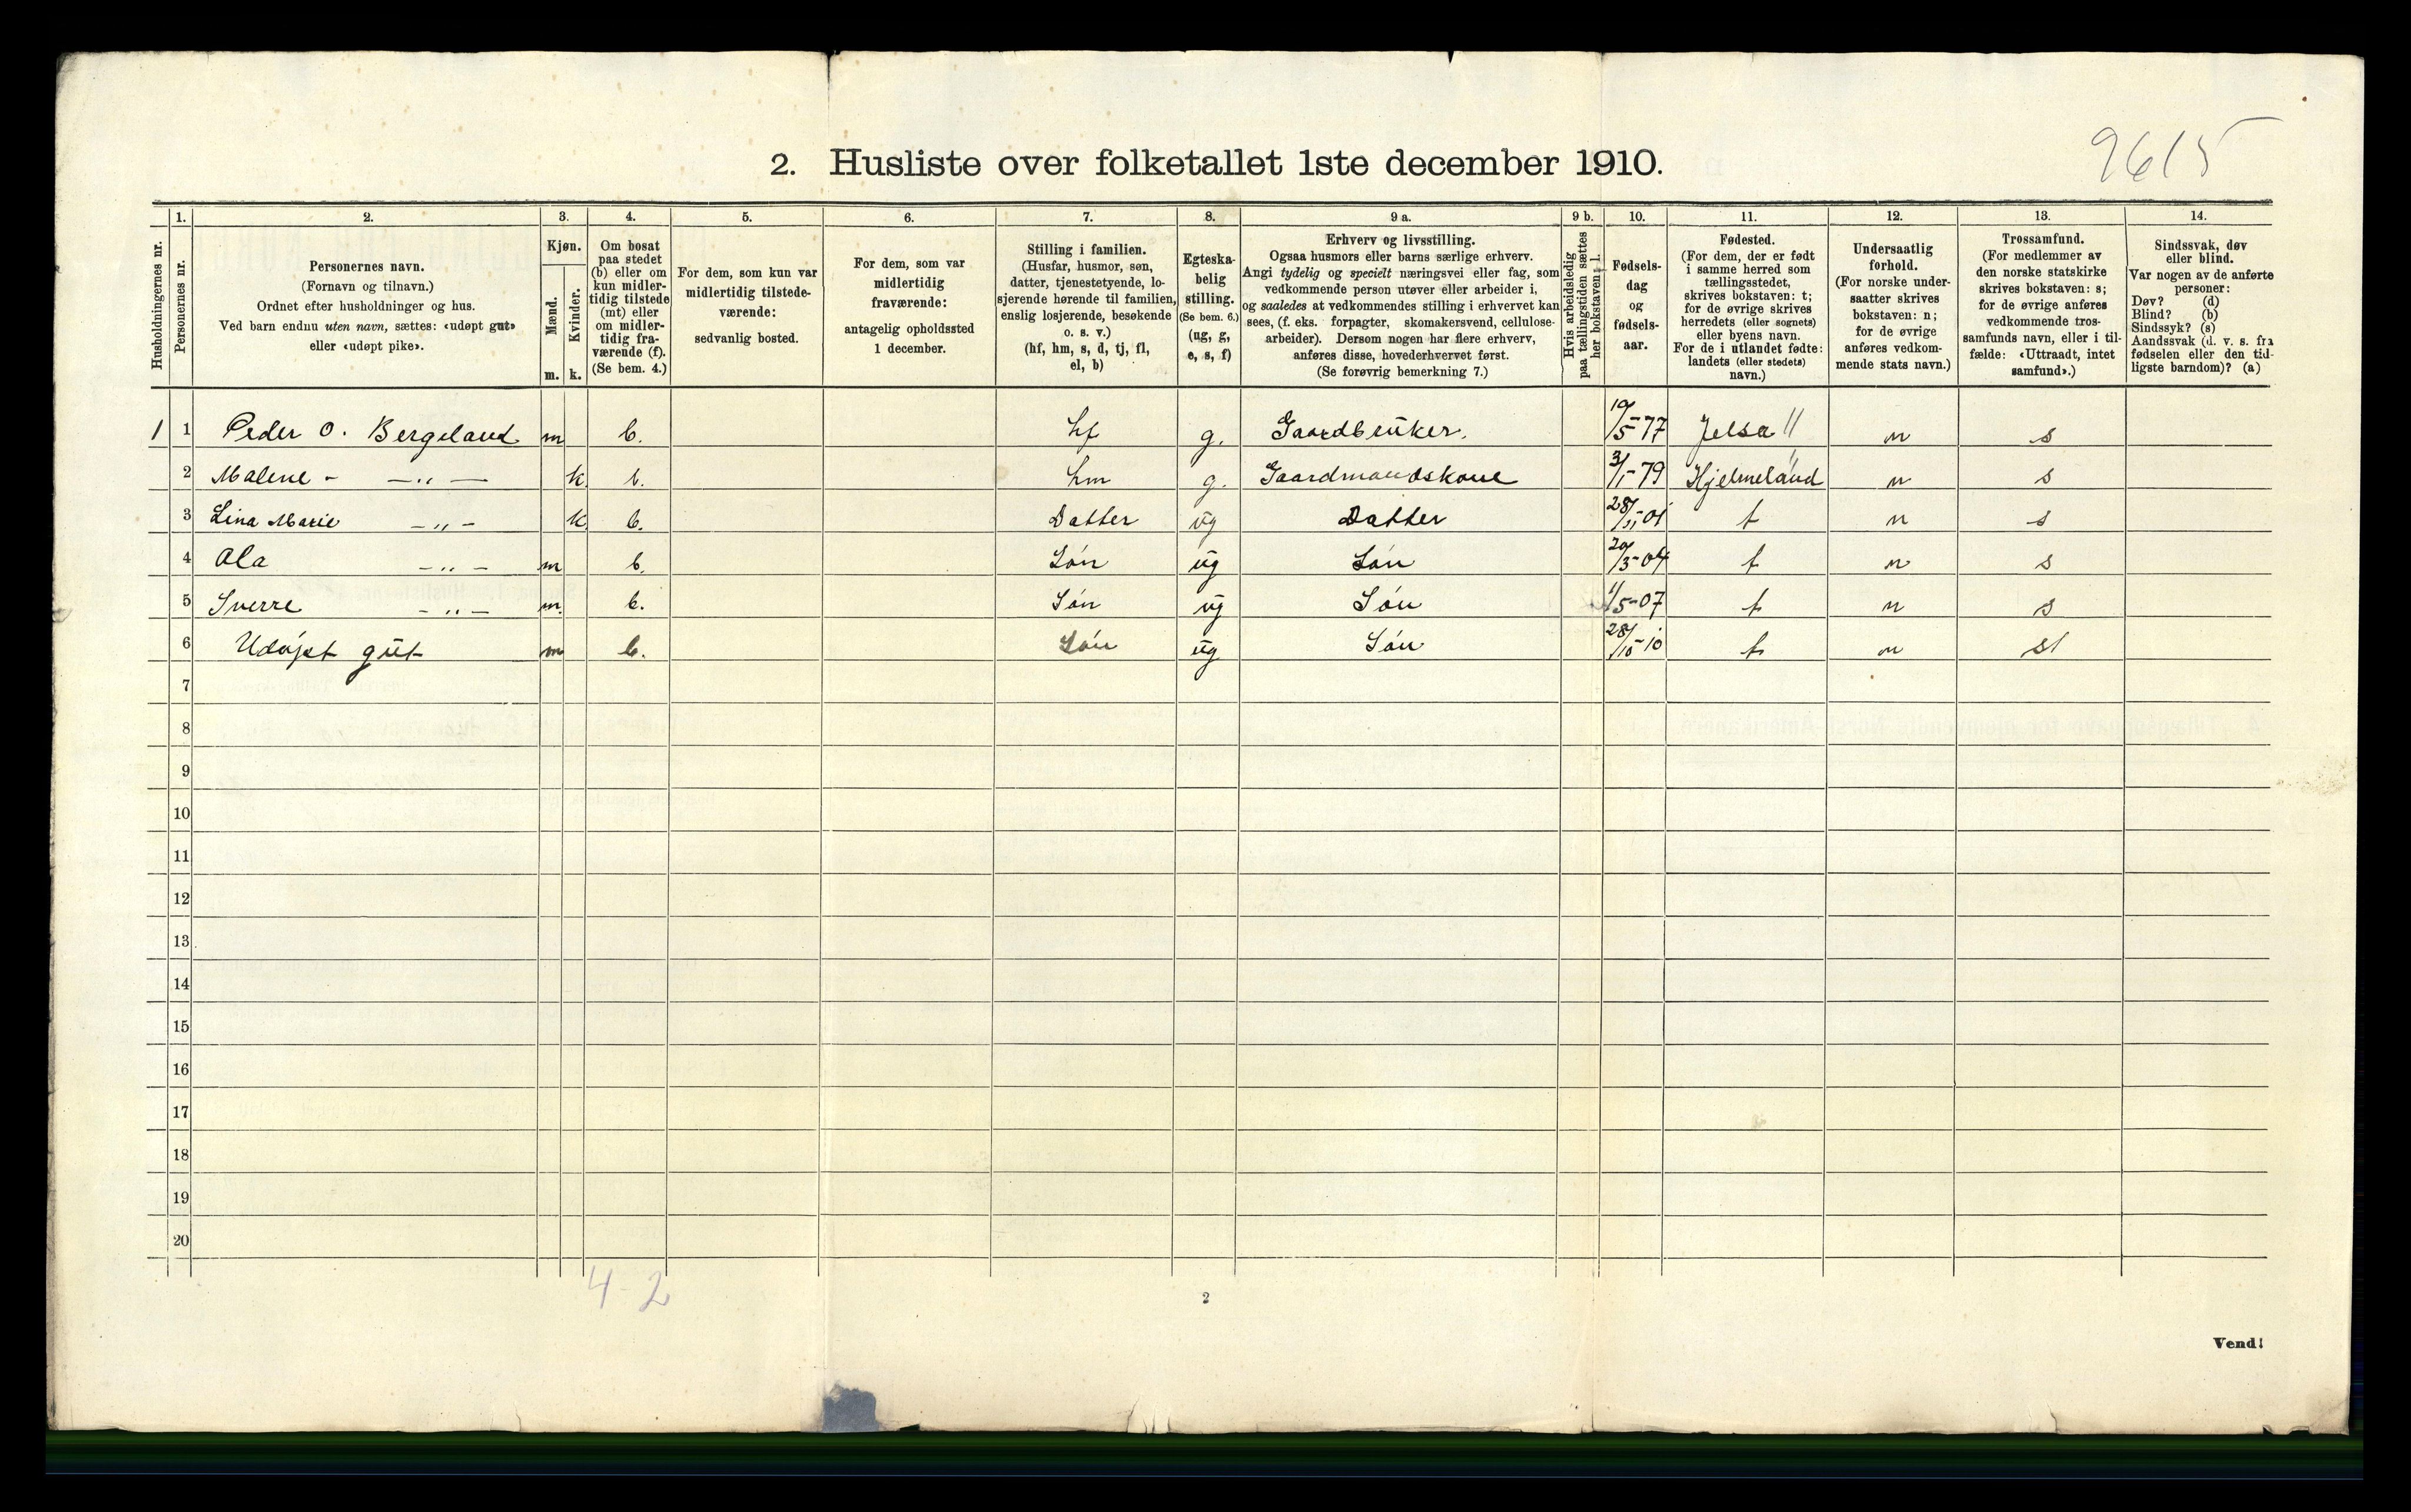 9615
2. Husliste over folketallet 1ste december 1910.
Husholdningernes nr.
1.
Personernes nr.
2.
Personernes navn.
(Fornavn og tilnavn.)
Ordnet efter husholdninger og hus.
Ved barn endnu uten navn, sættes: «udøpt gut»
eller «udøpt pike».
3.
Kjøn.
Mænd.
Kvinder.
m. k.
4.
Om bosat
paa stedet
(b) eller om
kun midler-
tidig tilstede
(mt) eller
om midler-
tidig fra-
værende (f).
(Se bem. 4.)
5.
For dem, som kun var
midlertidig tilstede-
værende:
sedvanlig bosted.
6.
For dem, som var
midlertidig
fraværende:
antagelig opholdssted
1 december.
7.
Stilling i familien.
(Husfar, husmor, søn,
datter, tjenestetyende, lo-
sjerende hørende til familien,
enslig losjerende, besøkende
o. s. v.)
(hf, hm, s, d, tj, fl,
el, b)
8.
Egteska-
belig
stilling.
(Se bem. 6.)
(ug, g,
e, s, f)
9 a.
Erhverv og livsstilling.
Ogsaa husmors eller barns særlige erhverv.
Angi tydelig og specielt næringsvei eller fag, som
vedkommende person utøver eller arbeider i,
og saaledes at vedkommendes stilling i erhvervet kan
sees, (f. eks. forpagter, skomakersvend, cellulose-
arbeider). Dersom nogen har flere erhverv,
anføres disse, hovederhvervet først.
(Se forøvrig bemerkning 7.)
9 b.
Hvis arbeidsledig
paa tællingstiden sættes
her bokstaven: l.
10.
Fødsels-
dag
og
fødsels-
aar.
11.
Fødested.
(For dem, der er født
i samme herred som
tællingsstedet,
skrives bokstaven: t;
for de øvrige skrives
herredets (eller sognets)
eller byens navn.
For de i utlandet fødte:
landets (eller stedets)
navn.)
12.
Undersaatlig
forhold.
(For norske under-
saatter skrives
bokstaven: n;
for de øvrige
anføres vedkom-
mende stats navn.)
13.
Trossamfund.
(For medlemmer av
den norske statskirke
skrives bokstaven: s;
for de øvrige anføres
vedkommende tros-
samfunds navn, eller i til-
fælde: «Uttraadt, intet
samfund».)
14.
Sindssvak, døv
eller blind.
Var nogen av de anførte
personer:
Døv? (d)
Blind? (b)
Sindssyk? (s)
Aandssvak (d. v. s. fra
fødselen eller den tid-
ligste barndom)? (a)
1 1 Peder O. Bergeland m b. hf g. Gaardbruker. 19/5-77 Jelsa " n s
2 Malene - -„- k. b. hm g. Gaardmandskone 3/1-79 Hjelmeland n s
3 Lina Marie -„- k b. Datter ug Datter 28/11-01 t n s
4 Ola -„- m b. Són ug Són 20/3-04 t n s
5 Sverre -„- m. b. Són ug Són 1/5-07 t n s
6 Udøpt gut m b. Són ug Són 28/10-10 t n s
7
8
9
10
11
12
13
14
15
16
17
18
19
20
4-2
2
Vend!